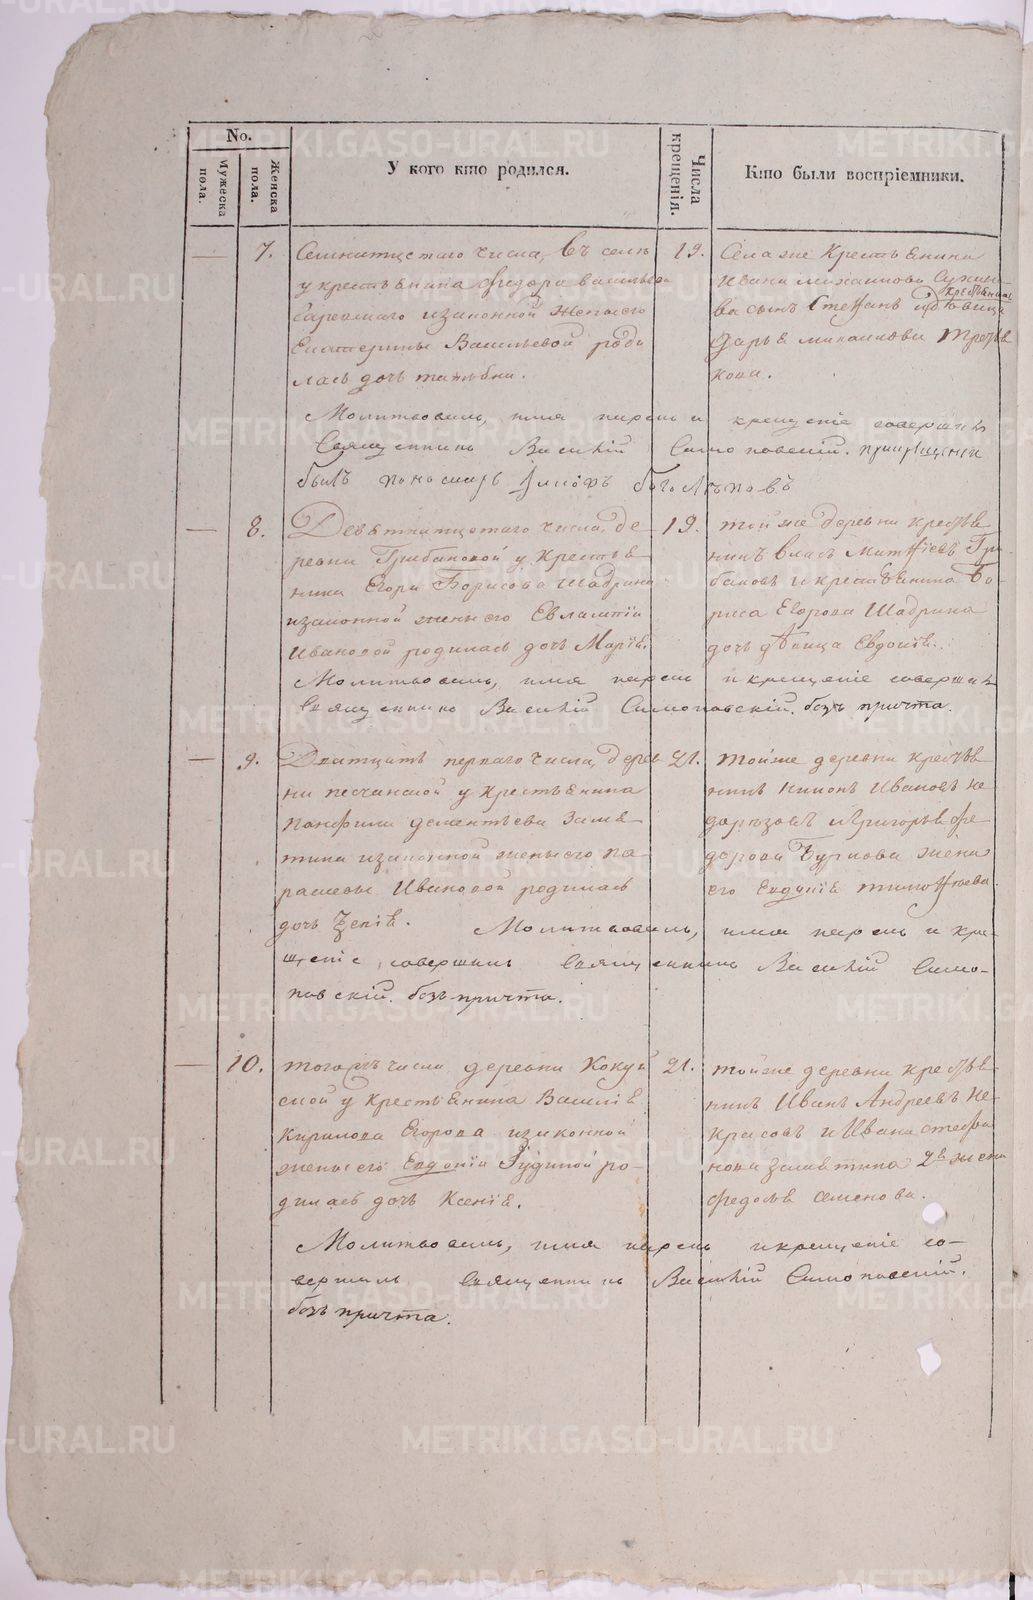 No.
Мужеска пола.
Женска пола.
У кого кто родился.
Числа крещенія.
Кто были воспріемники.
— 7. Семнатцетаго числа, въ селе
у крестьянина Федора Васильева
изаконной жены его
Екатерины Васильевой роди
лась дочь татьяна.
19. Села же Крестьянина
Ивана михаилова
ва сынъ Стефанъ и крестьянина дѣвица
Дарья михаилова Третья
кова.
Молитвовалъ, имя нарекъ и крещеніе совершилъ
Священникъ Василій Симоновскій. при крещеніи
былъ пономарь боголѣповъ
— 8. Девятнатцетаго числа де
ревни Грибановой у крестья
нина Егора Борисова Шадрина
изаконной жены его Евлампіи
Ивановой родилась дочь Марія.
19. той же деревни крестья
нинъ власъ Матфіевъ Гри
бановъ и крестьянина Бо
риса Егорова Шадрина
дочь дѣвица Евдокія.
Молитвовалъ, имя нарекъ и крещеніе совершилъ
Священникъ Василій Симоновскій. безъ причта.
— 9. Дватцать перваго числа, дерев
ни песчанской у крестьянина
Панфила дементьева Замя
тина изаконной жены его па
раскевы Ивановой родилась
дочь Ксенія.
21. той же деревни крестья
нинъ никонъ Ивановъ не
дорѣзовъ и Григорья Фе
дорова Буркова жена
его Евдокія тимофеева.
Молитвовалъ, имя нарекъ и кре-
щеніе совершилъ Священникъ Василій Симо-
новскій. безъ причта.
— 10. тогожъ числа деревни Кокуй
ской у крестьянина Василія
Кирилова Егорова изаконной
жены его Евдокіи родиной ро-
дилась дочь Ксенія.
21. той же деревни крестья
нинъ Иванъ Андреевъ Не-
красовъ и Ивана стефа
нова замятина 2я жена
федосья семенова.
Молитвовалъ, имя нарекъ и крещеніе со-
вершилъ Священникъ Василій Симоновскій.
безъ причта.
METRIKI.GASO-URAL.RU